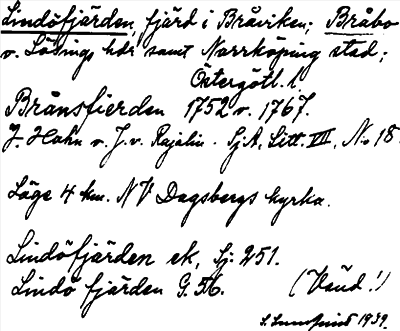 Lindöfjärden, fjärd i Bråviken; Bråbo
o. Lösings hdr samt Norrköping stad;
Östergötl. l.
Brånsfierden 1752 o. 1767.
J. Hahn o. J. v. Rajalin. Sj.A, Litt. VII, No 18.
Läge 4 km. NV Dagsbergs kyrka.
Lindöfjärden ek, Sj: 251.
Lindö fjärden G. 56. (Vänd!)
1939.